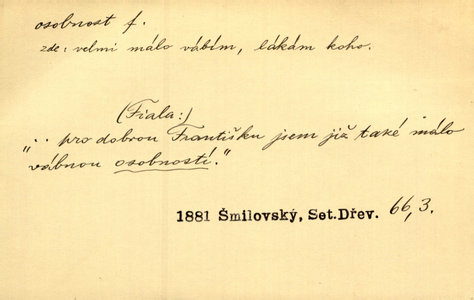 osobnost f.
zde: velmi málo vábím, lákám koho.
(Fiala:)
„.. pro dobrou Františku jsem již také málo
vábnou osobností."
1881 Šmilovský, Set.Dřev. 66,3.